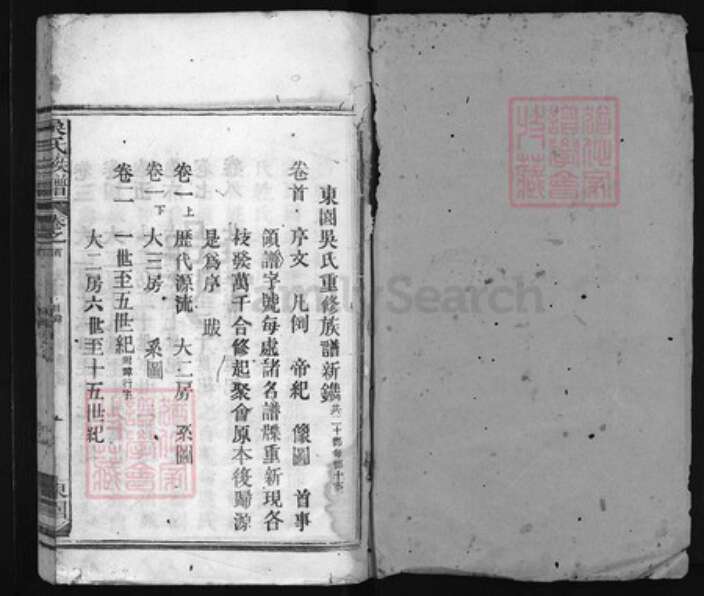 東園吳氏重修族譜新鐫共二十部每部十本
卷首 序文 凡例 帝紀 像圖 首事
領譜字號每處諸名譜牒重新現各
枝發萬千合修起聚會原本後歸源
是為序 跋
卷一上 歷代源流 大二房 系圖
卷一下 大三房 系圖
卷二 一世至五世紀
大二房六世至十五世紀
吳氏族譜
卷之首
東園
FamilySearch